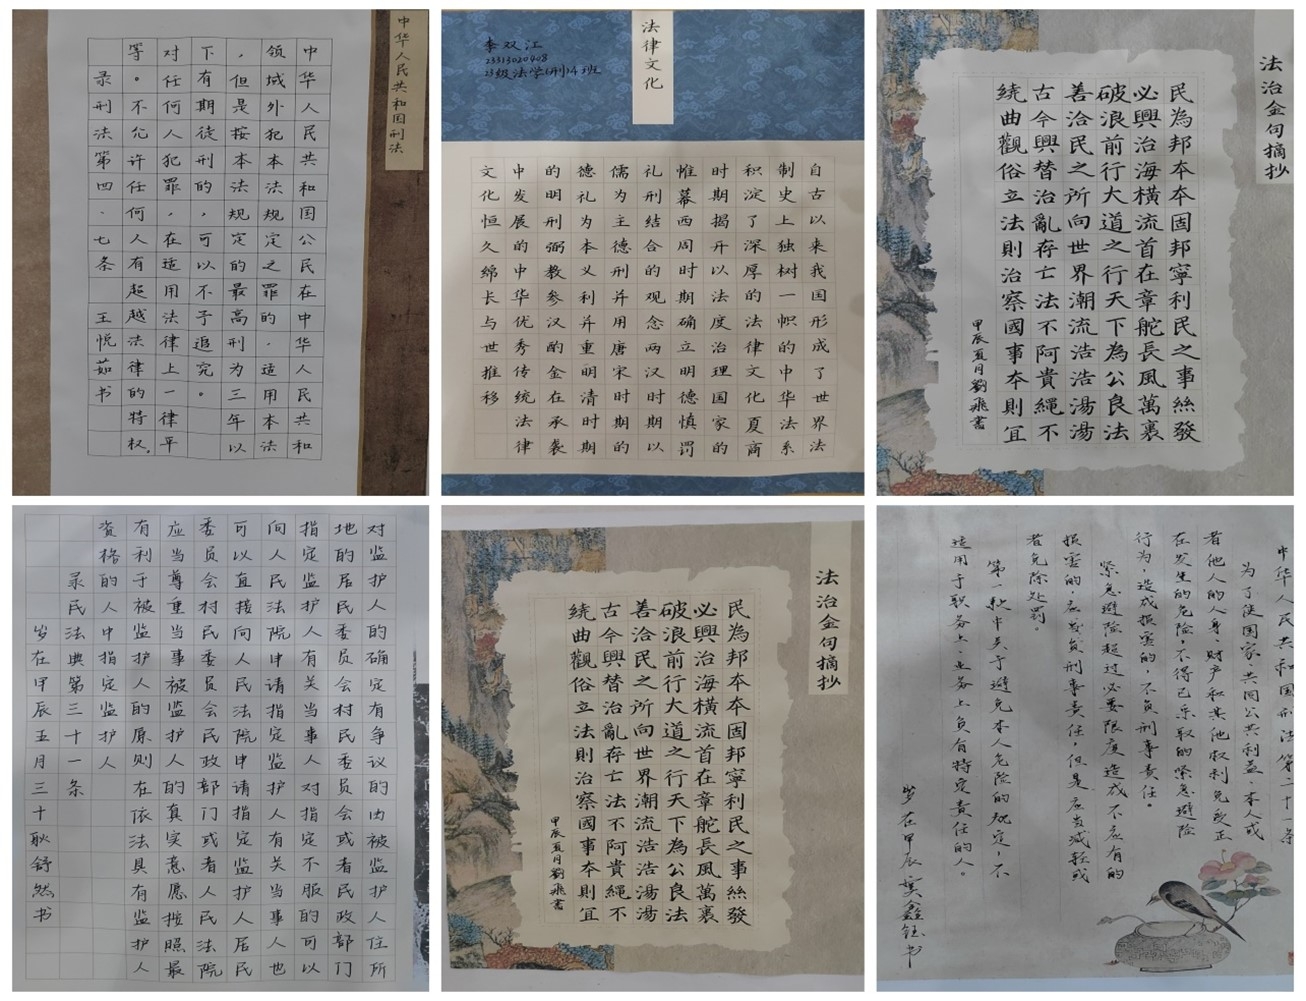 中华人民共和国刑法
中华人民共和国公民在中华人民共和
领域外犯本法规定之罪的，适用本法
，但是按本法规定的最高刑为三年以
下有期徒刑的，可以不予追究。
对任何人犯罪，在适用法律上一律平
等。不允许任何人有超越法律的特权。
录刑法第四、七条 王悦茹书
法律文化
李双江
23313020408
23级法学(刑)4班
自古以来我国形成了世界法
制史上独树一帜的中华法系
积淀了深厚的法律文化夏商
时期揭开以法度治理国家的
帷幕西周时期确立明德慎罚
礼刑结合的观念两汉时期以
儒为主德刑并用唐宋时期的
德礼为本义利并重明清时期
的明刑弼教参汉酌金在承袭
中发展的中华优秀传统法律
文化恒久绵长与世推移
法治金句摘抄
民為邦本本固邦寧利民之事絲發
必興治海橫流首在章舵長風萬裏
破浪前行大道之行天下為公良法
善治民之所向世界潮流浩浩湯湯
古今興替治亂存亡法不阿貴繩不
繞曲觀俗立法則治察國事本則宜
甲辰夏月劉飛書
对监护人的确定有争议的由被监护人住所
地的居民委员会村民委员会或者民政部门
指定监护人有关当事人对指定不服的可以
向人民法院申请指定监护人有关当事人也
可以直接向人民法院申请指定监护人居民
委员会村民委员会民政部门或者人民法院
应当尊重当事被监护人的真实意愿按照最
有利于被监护人的原则在依法具有监护人
资格的人中指定监护人
录民法典第三十一条
岁在甲辰五月三十耿舒然书
法治金句摘抄
民為邦本本固邦寧利民之事絲發
必興治海橫流首在章舵長風萬裏
破浪前行大道之行天下為公良法
善治民之所向世界潮流浩浩湯湯
古今興替治亂存亡法不阿貴繩不
繞曲觀俗立法則治察國事本則宜
甲辰夏月劉飛書
中华人民共和国刑法第二十一条
为了使国家共同公共利益、本人或
者他人的人身、财产和其他权利免受正
在发生的危险，不得已采取的紧急避险
行为，造成损害的，不负刑事责任。
紧急避险超过必要限度造成不应有的
损害的，应当负刑事责任，但是应当减轻或
者免除处罚。
第一款中关于避免本人危险的规定，不
适用于职务上、业务上负有特定责任的人。
岁在甲辰 窦鑫钰书